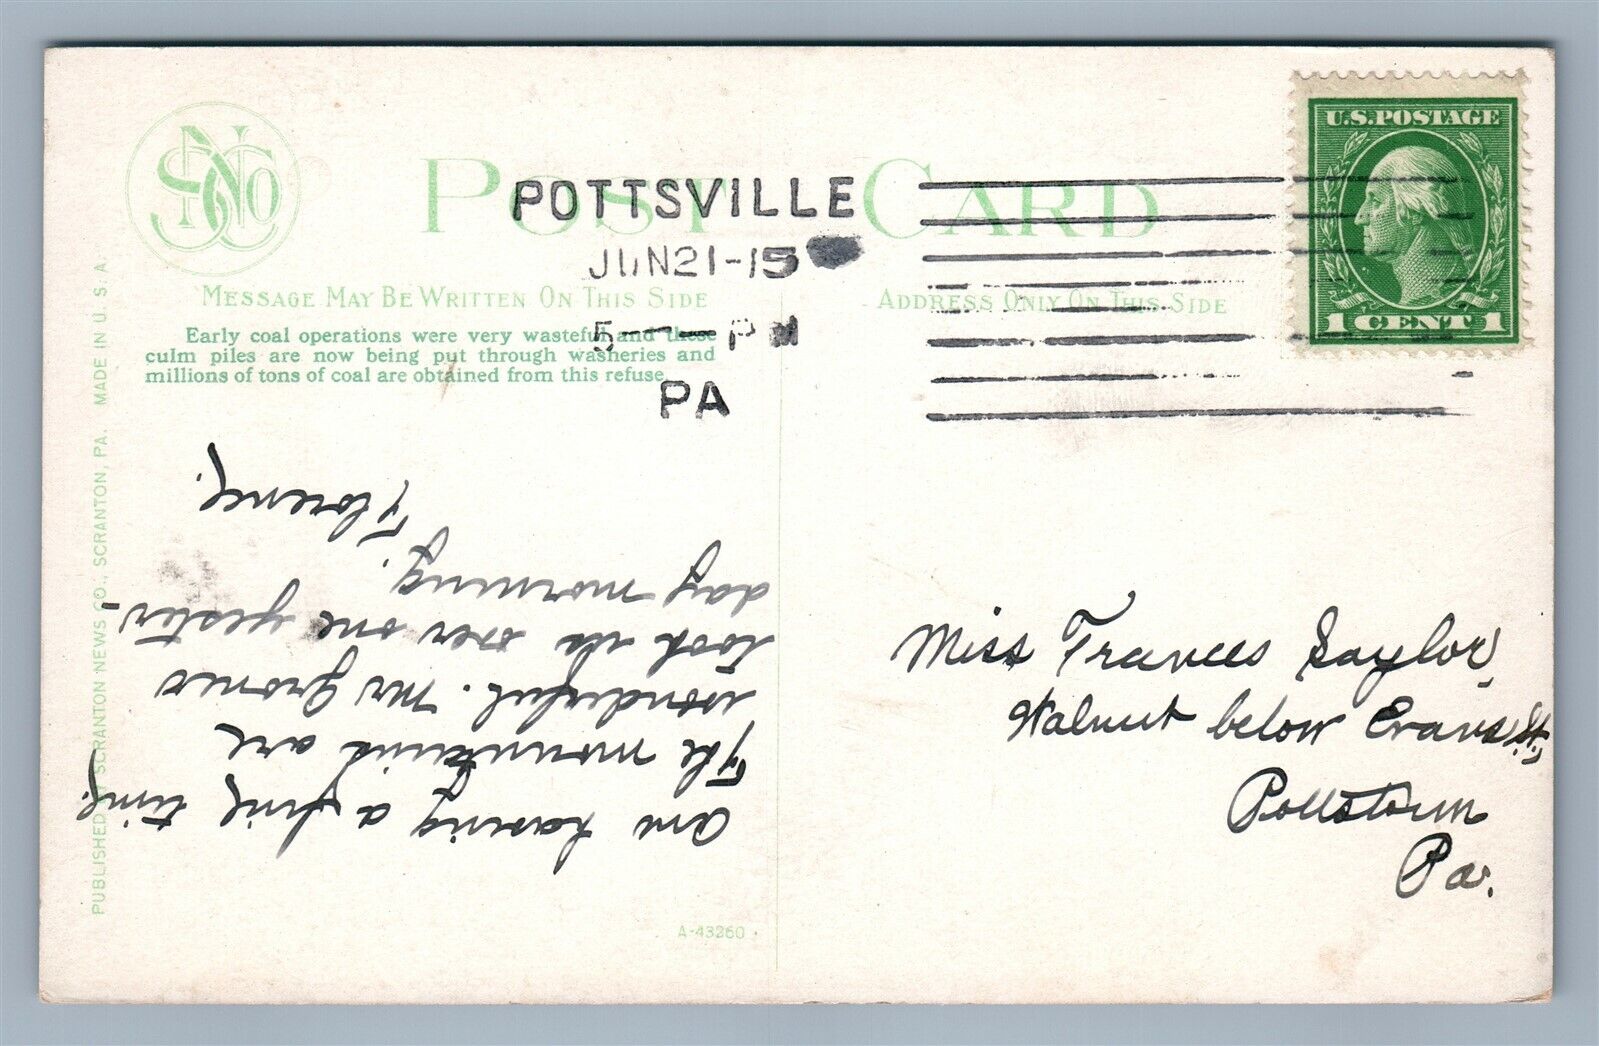 SNCO
POST CARD
POTTSVILLE
JUN 21-15
5 — PM
PA
U.S. POSTAGE
1 CENT 1
MESSAGE MAY BE WRITTEN ON THIS SIDE
ADDRESS ONLY ON THIS SIDE
Early coal operations were very wasteful and these
culm piles are now being put through washeries and
millions of tons of coal are obtained from this refuse.
PUBLISHED BY SCRANTON NEWS CO., SCRANTON, PA. MADE IN U. S. A.
Am having a fine time.
The mountains are
wonderful. Mr
took us over one yester-
day morning.
Florence.
Miss Frances Saylor,
Walnut below Evans St.
Pottstown
Pa.
A-43260